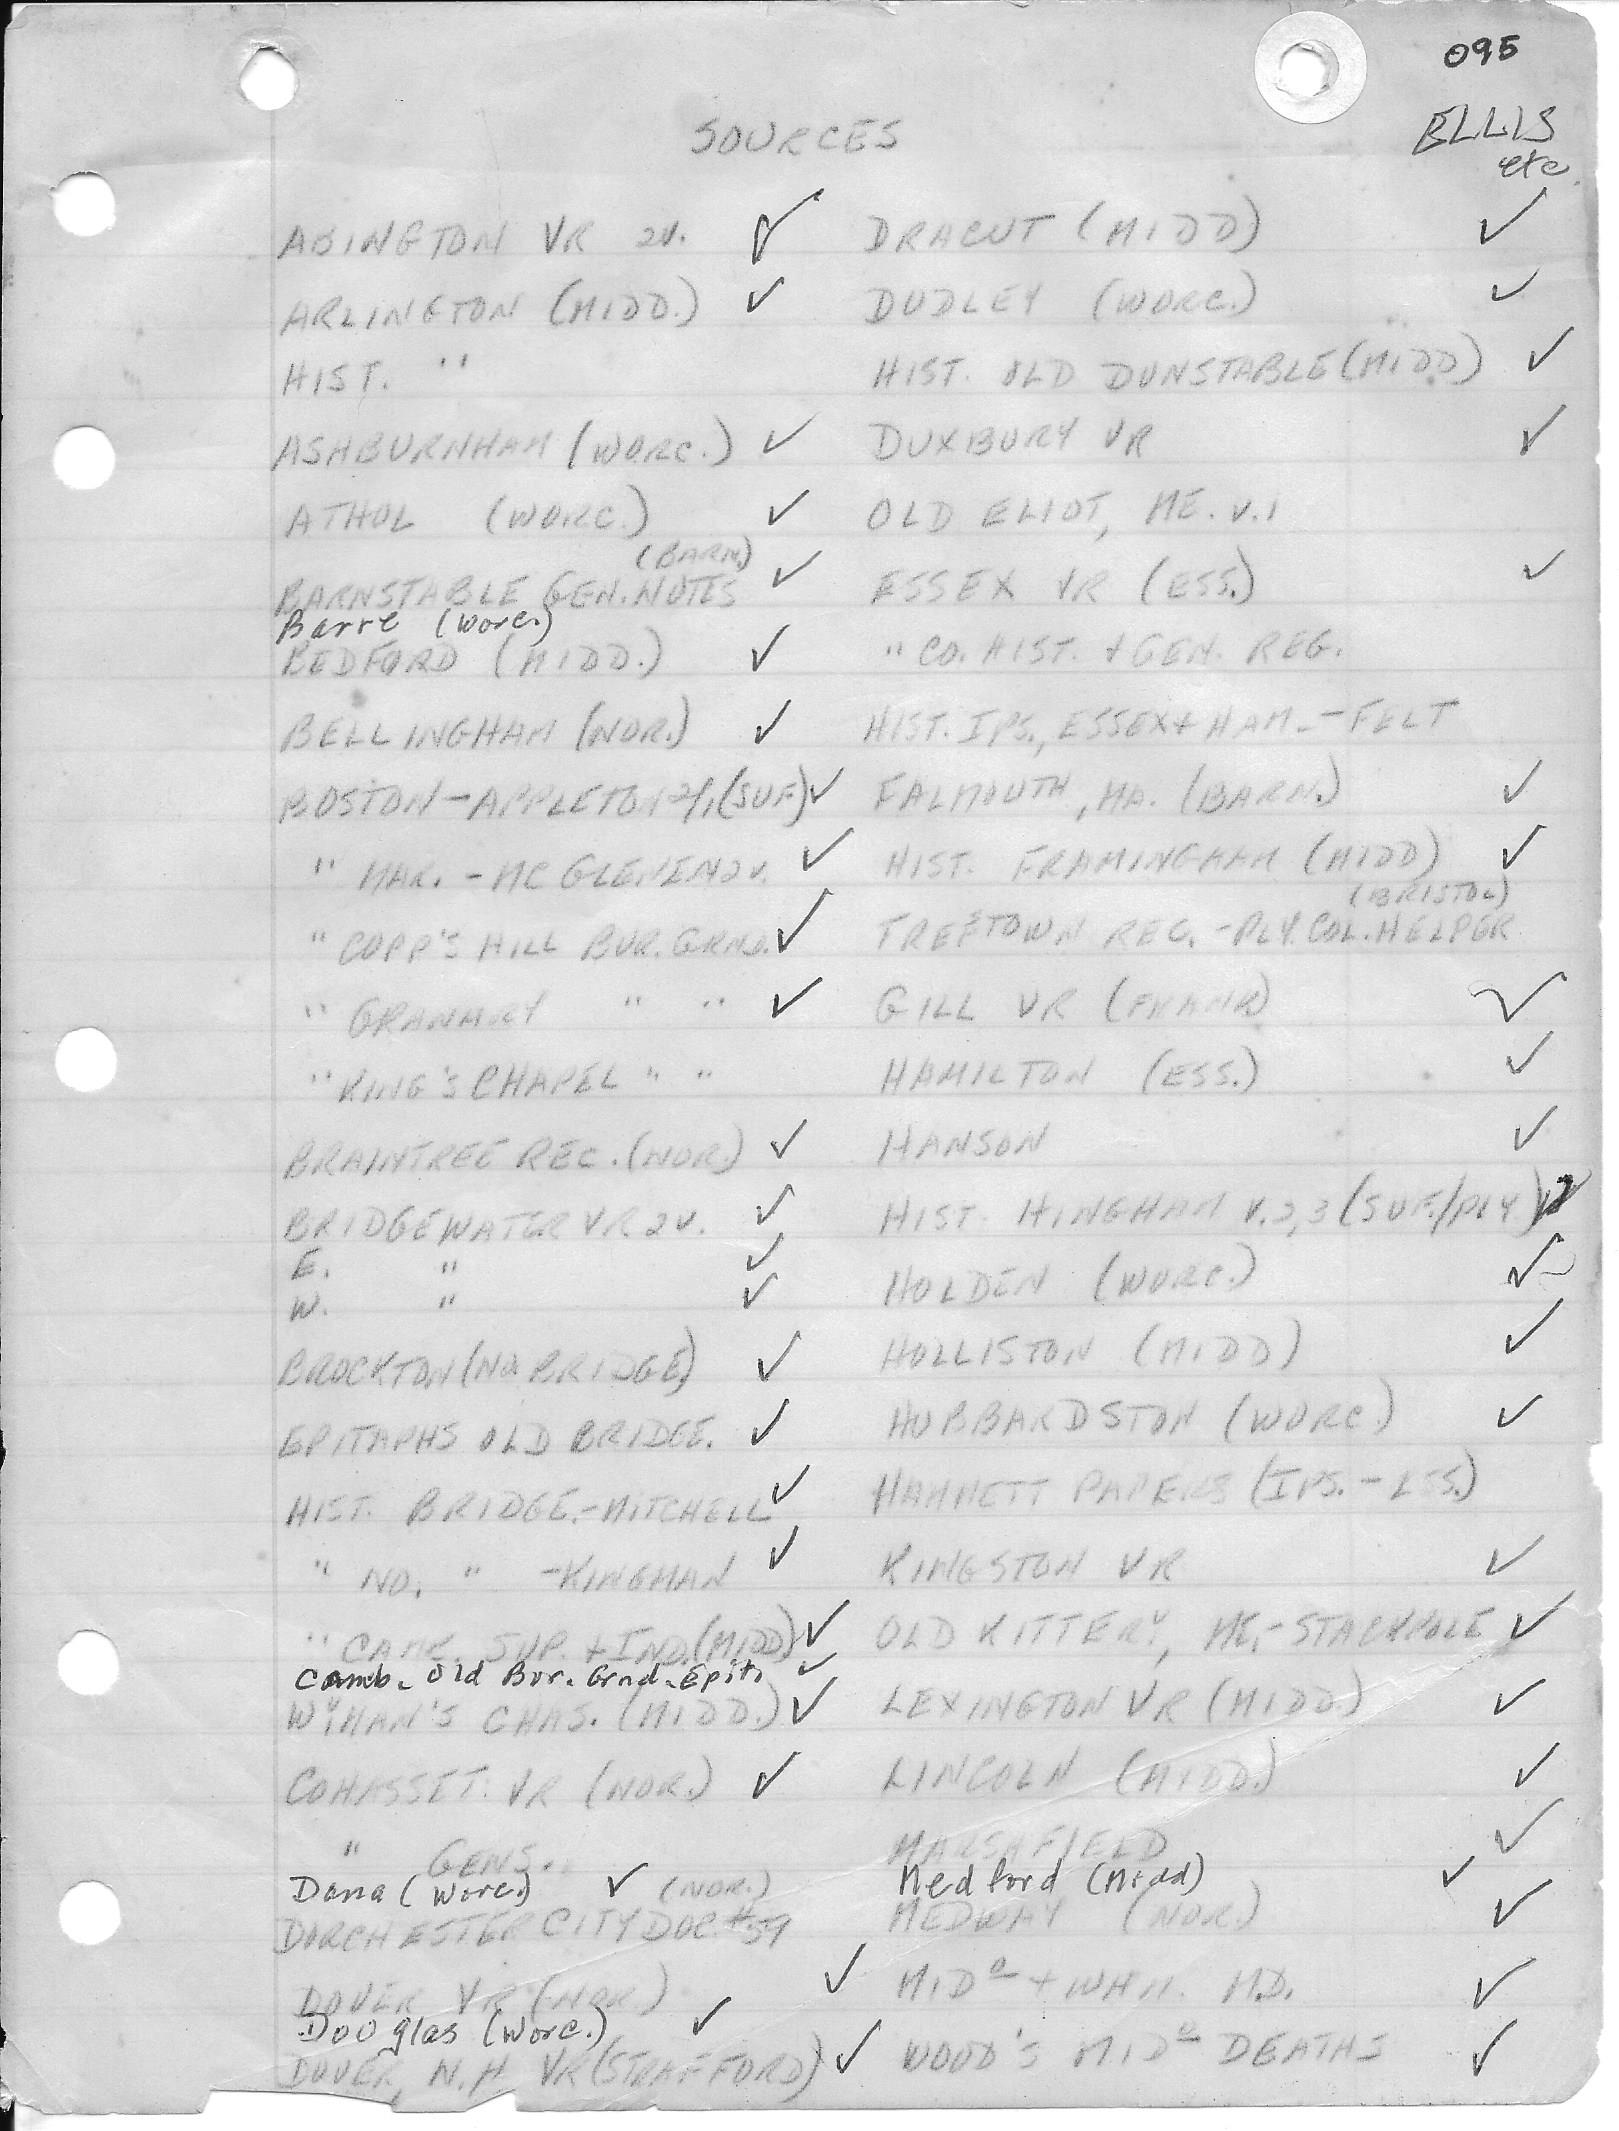 095
ELLIS
etc.
SOURCES
ABINGTON VR 2V. ✓
ARLINGTON (MIDD.) ✓
HIST. "
ASHBURNHAM (WORC.) ✓
ATHOL (WORC.) ✓
(BARN.)
BARNSTABLE GEN. NOTES ✓
Barre (Worc.)
BEDFORD (MIDD.) ✓
BELLINGHAM (NOR.) ✓
BOSTON - APPLETON 2/1 (SUF) ✓
" MAR. - MCGLENEN 2V. ✓
" COPP'S HILL BUR. GRND. ✓
" GRANARY " " ✓
" KING'S CHAPEL " "
BRAINTREE REC. (NOR.) ✓
BRIDGEWATER VR 2V. ✓
E. " ✓
W. " ✓
BROCKTON (NO BRIDGE) ✓
EPITAPHS OLD BRIDGE. ✓
HIST. BRIDGE. - MITCHELL ✓
" NO. " - KINGMAN ✓
" CAMB. SUP. + IND. (MIDD) ✓
Camb. Old Bur. Grnd. Epit. ✓
WYMAN'S CHAS. (MIDD.) ✓
COHASSET VR (NOR.) ✓
" GENS.
Dana (Worc.) ✓
(NOR.)
DORCHESTER CITY DOC. #59
DOVER VR (NOR.) ✓
Douglas (Worc.) ✓
DOVER, N.H VR (STRAFFORD) ✓
DRACUT (MIDD) ✓
DUDLEY (WORC.) ✓
HIST. OLD DUNSTABLE (MIDD) ✓
DUXBURY VR ✓
OLD ELIOT, ME. V. 1
ESSEX VR (ESS.) ✓
" CO. HIST. + GEN. REG.
HIST. IPS., ESSEX + HAM. - FELT
FALMOUTH, MA. (BARN.) ✓
HIST. FRAMINGHAM (MIDD) ✓
(BRISTOL)
FREETOWN REC. - PLY. COL. HELPER
GILL VR (FRANK) ✓
HAMILTON (ESS.) ✓
HANSON ✓
HIST. HINGHAM V. 2, 3 (SUF./PLY.) ✓
HOLDEN (WORC.) ✓
HOLLISTON (MIDD) ✓
HUBBARDSTON (WORC.) ✓
HAMMETT PAPERS (IPS. - ESS.)
KINGSTON VR ✓
OLD KITTERY, ME. - STACKPOLE ✓
LEXINGTON VR (MIDD.) ✓
LINCOLN (MIDD.) ✓
MARSHFIELD ✓
Medford (Midd) ✓
MEDWAY (NOR.) ✓
MIDº + WHM. M.D. ✓
WOOD'S MIDº DEATHS ✓